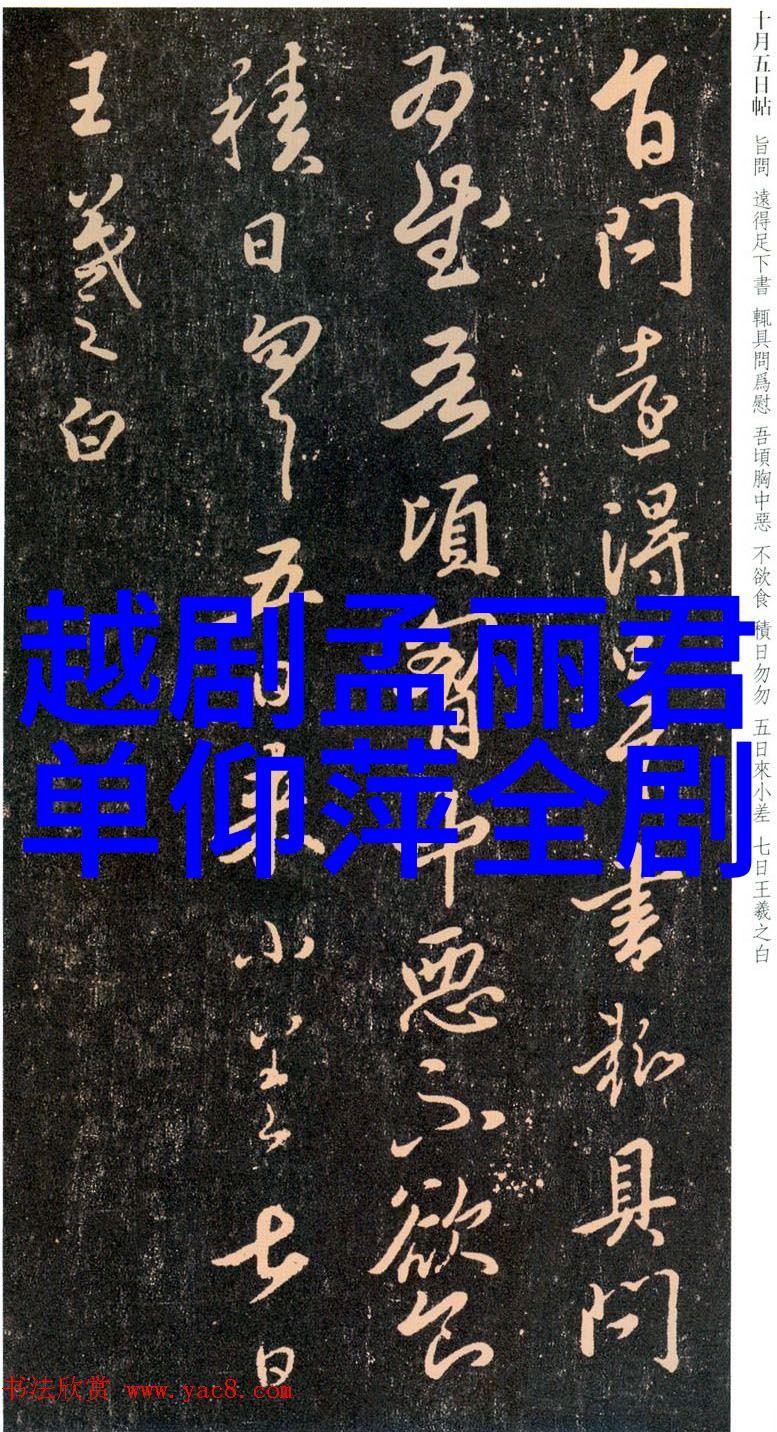 十月五日帖 旨問 遠得足下書 輒具問爲慰 吾頃胸中惡 不欲食 積日勿勿 五日來小差 七日王羲之白
旨問遠得足下書輒具問
爲慰吾頃胸中惡不欲食
積日勿勿五日來小差七日
王羲之白
越剧孟丽君
单仰萍全剧
书法欣赏 www.yac8.com